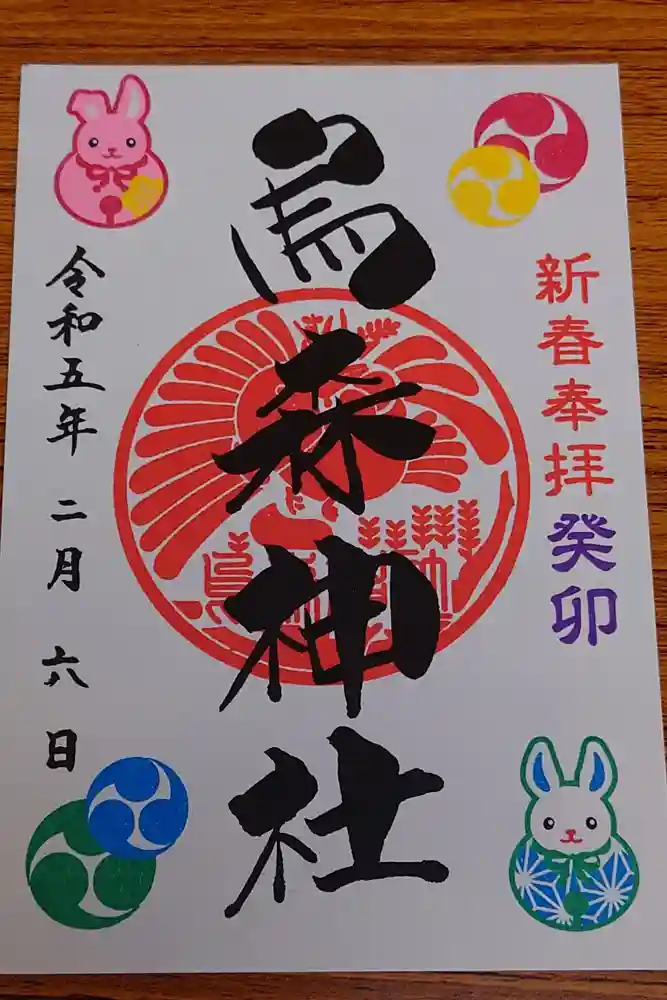 新春奉拝癸卯
烏森神社
令和五年 二月 六日